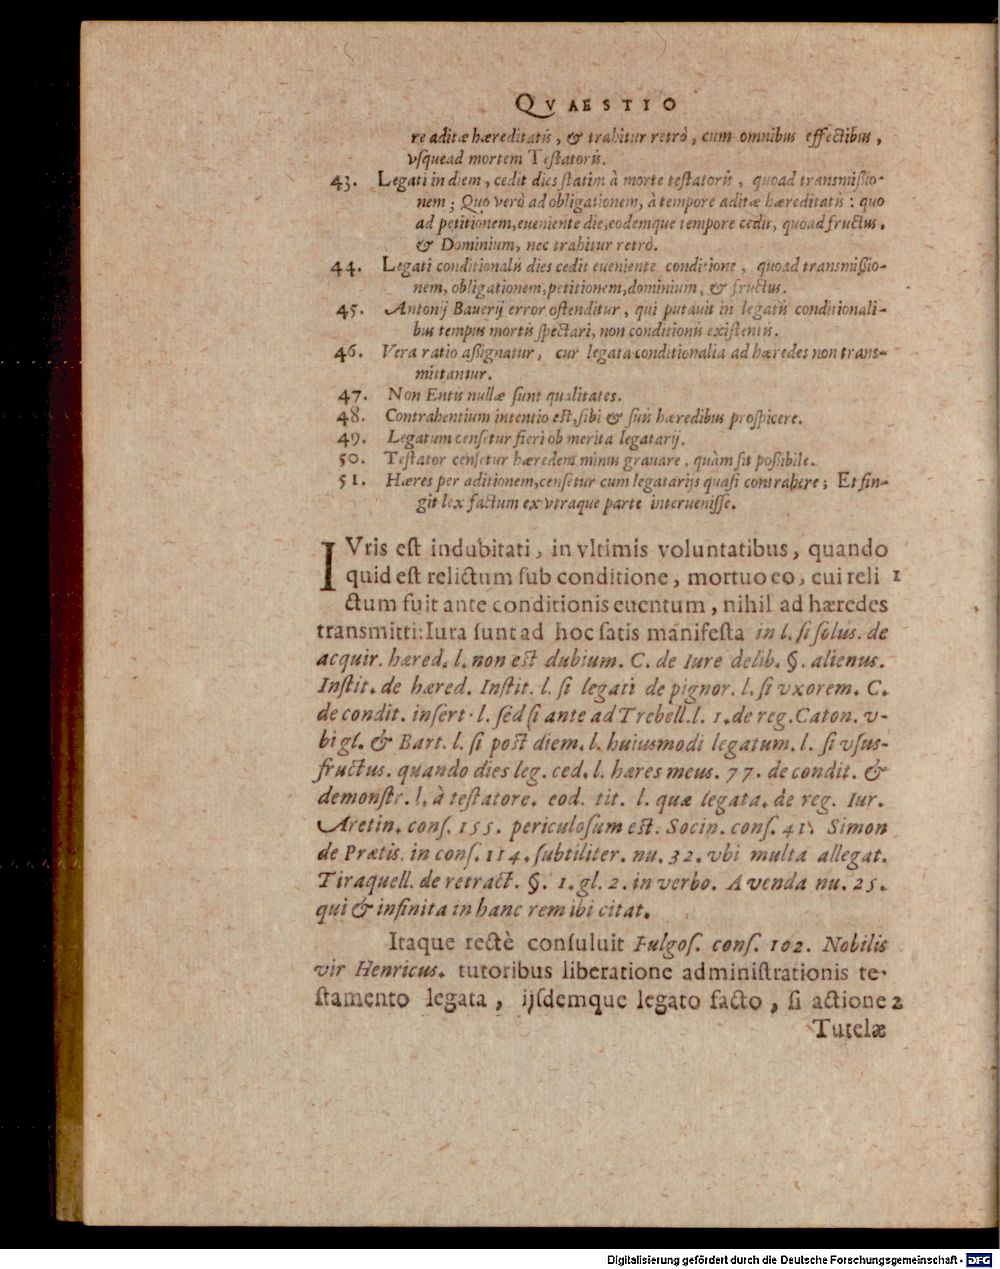 QVAESTIO
re aditæ hæreditatis, & trahitur retrò, cum omnibus effectibus,
vſquead mortem Teſtatoris.
43. Legati in diem, cedit dies ſtatim à morte teſtatoris, quoad tranſmiſsio-
nem; Quo verò ad obligationem, à tempore aditæ hæreditatis: quo
ad petitionem, eueniente die, eodemque tempore cedit, quoad fructus,
& Dominium, nec trahitur retrò.
44. Legati conditionalis dies cedit eueniente conditione, quoad tranſmiſsio-
nem, obligationem, petitionem, dominium, & fructus.
45. Antonij Bauerij error oſtenditur, qui putauit in legatis conditionali-
bus tempus mortis ſpectari, non conditionis exiſtentis.
46. Vera ratio aſsignatur, cur legata conditionalia ad hæredes non tranſ-
mittantur.
47. Non Entis nullæ ſunt qualitates.
48. Contrahentium intentio eſt, ſibi & ſuis hæredibus proſpicere.
49. Legatum cenſetur fieri ob merita legatarij.
50. Teſtator cenſetur hæredem minus grauare, quàm ſit poſsibile.
51. Hæres per aditionem, cenſetur cum legatarijs quaſi contrahere; Et fin-
git lex factum ex vtraque parte interueniſſe.
IVris eſt indubitati, in vltimis voluntatibus, quando
quid eſt relictum ſub conditione, mortuo eo, cui reli 1
ctum fuit ante conditionis euentum, nihil ad hæredes
tranſmitti: Iura ſunt ad hoc ſatis manifeſta in l. ſi ſolus. de
acquir. hæred. l. non est dubium. C. de Iure delib. §. alienus.
Inſtit. de hæred. Inſtit. l. ſi legati de pignor. l. ſi vxorem. C.
de condit. inſert. l. ſed ſi ante ad Trebell. l. 1. de reg. Caton. v-
bi gl. & Bart. l. ſi post diem. l. huiusmodi legatum. l. ſi vſus-
fructus. quando dies leg. ced. l. hæres meus. 77. de condit. &
demonſtr. l. à teſtatore. eod. tit. l. quæ legata. de reg. Iur.
Aretin. conſ. 155. periculoſum est. Socin. conſ. 41. Simon
de Prætis. in conſ. 114. ſubtiliter. nu. 32. vbi multa allegat.
Tiraquell. de retract. §. 1. gl. 2. in verbo. A venda nu. 25.
qui & infinita in hanc rem ibi citat.
Itaque rectè conſuluit Fulgoſ. conſ. 102. Nobilis
vir Henricus. tutoribus liberatione adminiſtrationis te-
ſtamento legata, ijſdemque legato facto, ſi actione 2
Tutelæ
Digitalisierung gefördert durch die Deutsche Forschungsgemeinschaft - DFG